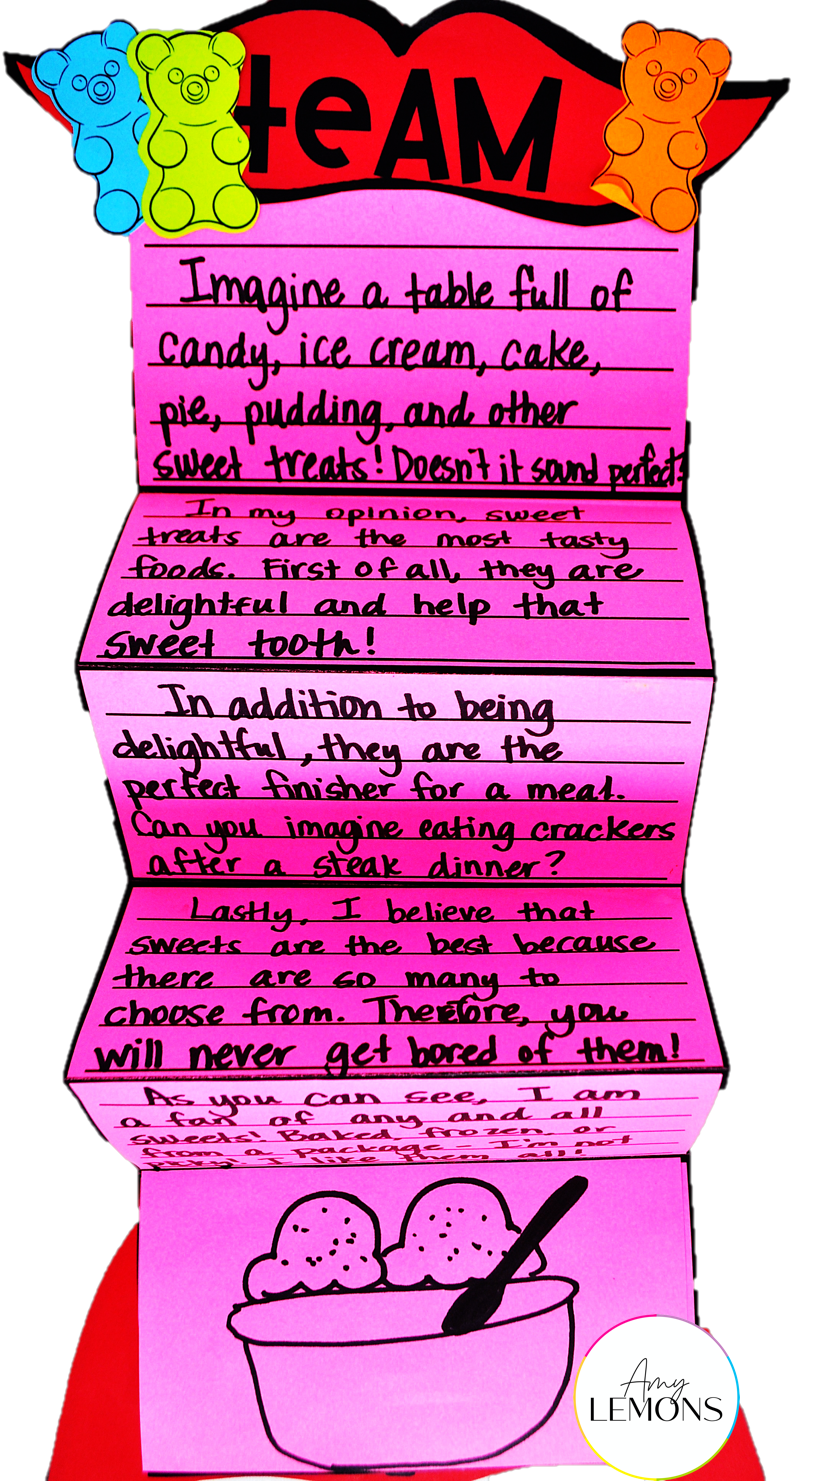 teAM
Imagine a table full of
candy, ice cream, cake,
pie, pudding, and other
sweet treats! Doesn't it sound perfect?
In my opinion, sweet
treats are the most tasty
foods. First of all, they are
delightful and help that
sweet tooth!
In addition to being
delightful, they are the
perfect finisher for a meal.
Can you imagine eating crackers
after a steak dinner?
Lastly, I believe that
sweets are the best because
there are so many to
choose from. Therefore, you
will never get bored of them!
As you can see, I am
a fan of any and all
sweets! Baked, frozen, or
from a package - I'm not
picky! I like them all!
Amy
LEMONS